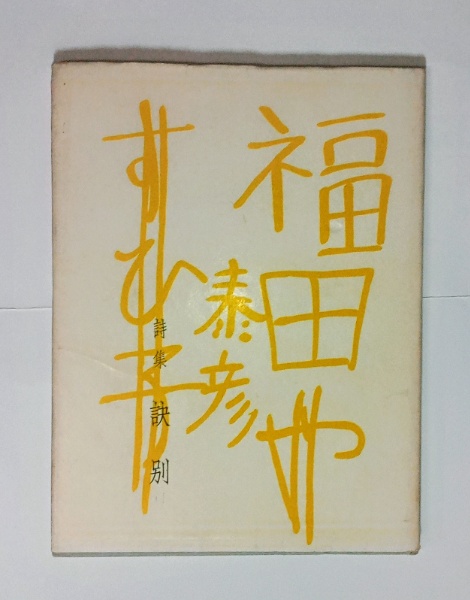 福田や
泰彦
すひ
詩集 訣別